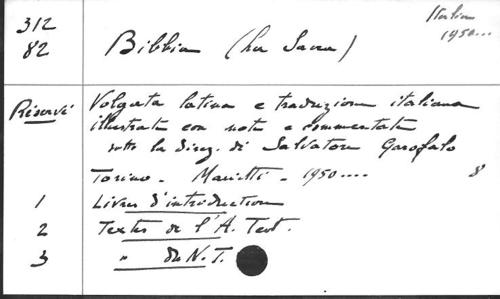 312
82
Bibbia (La Sacra)
Italia
1950...
Réservé
Volgata latina e traduzione italiana
illustrata con note e commentata
sotto la direz. di Salvatore Garofalo
Torino - Marietti - 1950.... 8
1 Livres d'introduction
2 Textes de l'A. Test.
3 " du N. T.